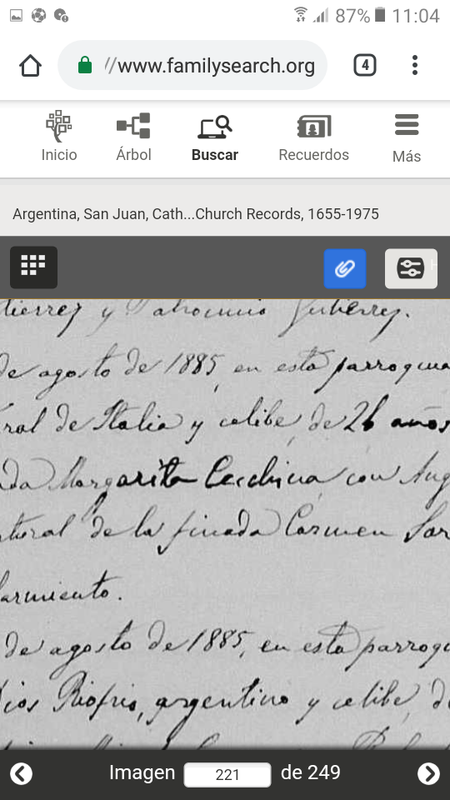 87% 11:04
//www.familysearch.org
4
Inicio Árbol Buscar Recuerdos Más
Argentina, San Juan, Cath...Church Records, 1655-1975
tierrez y Patrocinio Gutierrez.
de agosto de 1885, en esta parroquia
ral de Italia y celibe, de 26 años
da Margarita Cecchina con Aug
tural de la finada Carmen Sar
armiento.
de agosto de 1885, en esta parroqu
ios Riofrio, argentino y celibe, de
Imagen 221 de 249